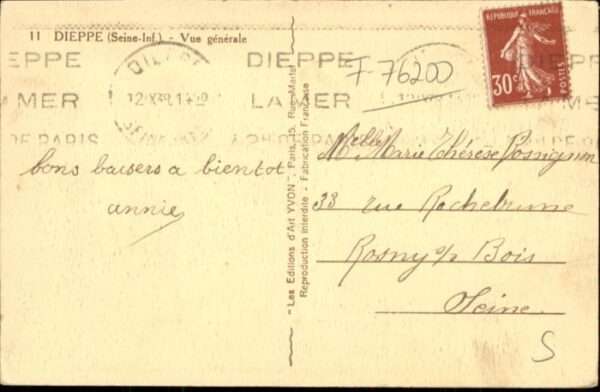 11 DIEPPE (Seine-Inf.) - Vue générale
DIEPPE
LA MER
DIEPPE
LA MER
DE PARIS
F 76200
REPUBLIQUE FRANÇAISE
30c
POSTES
bons baisers a bientot
annie
"Les Editions d'Art YVON", Paris, 15, Rue Martel
Reproduction interdite - Fabrication Française
Melle Marie Thérèse Rossignon
33 rue Rochebrune
Rosny s/s Bois
Seine
S